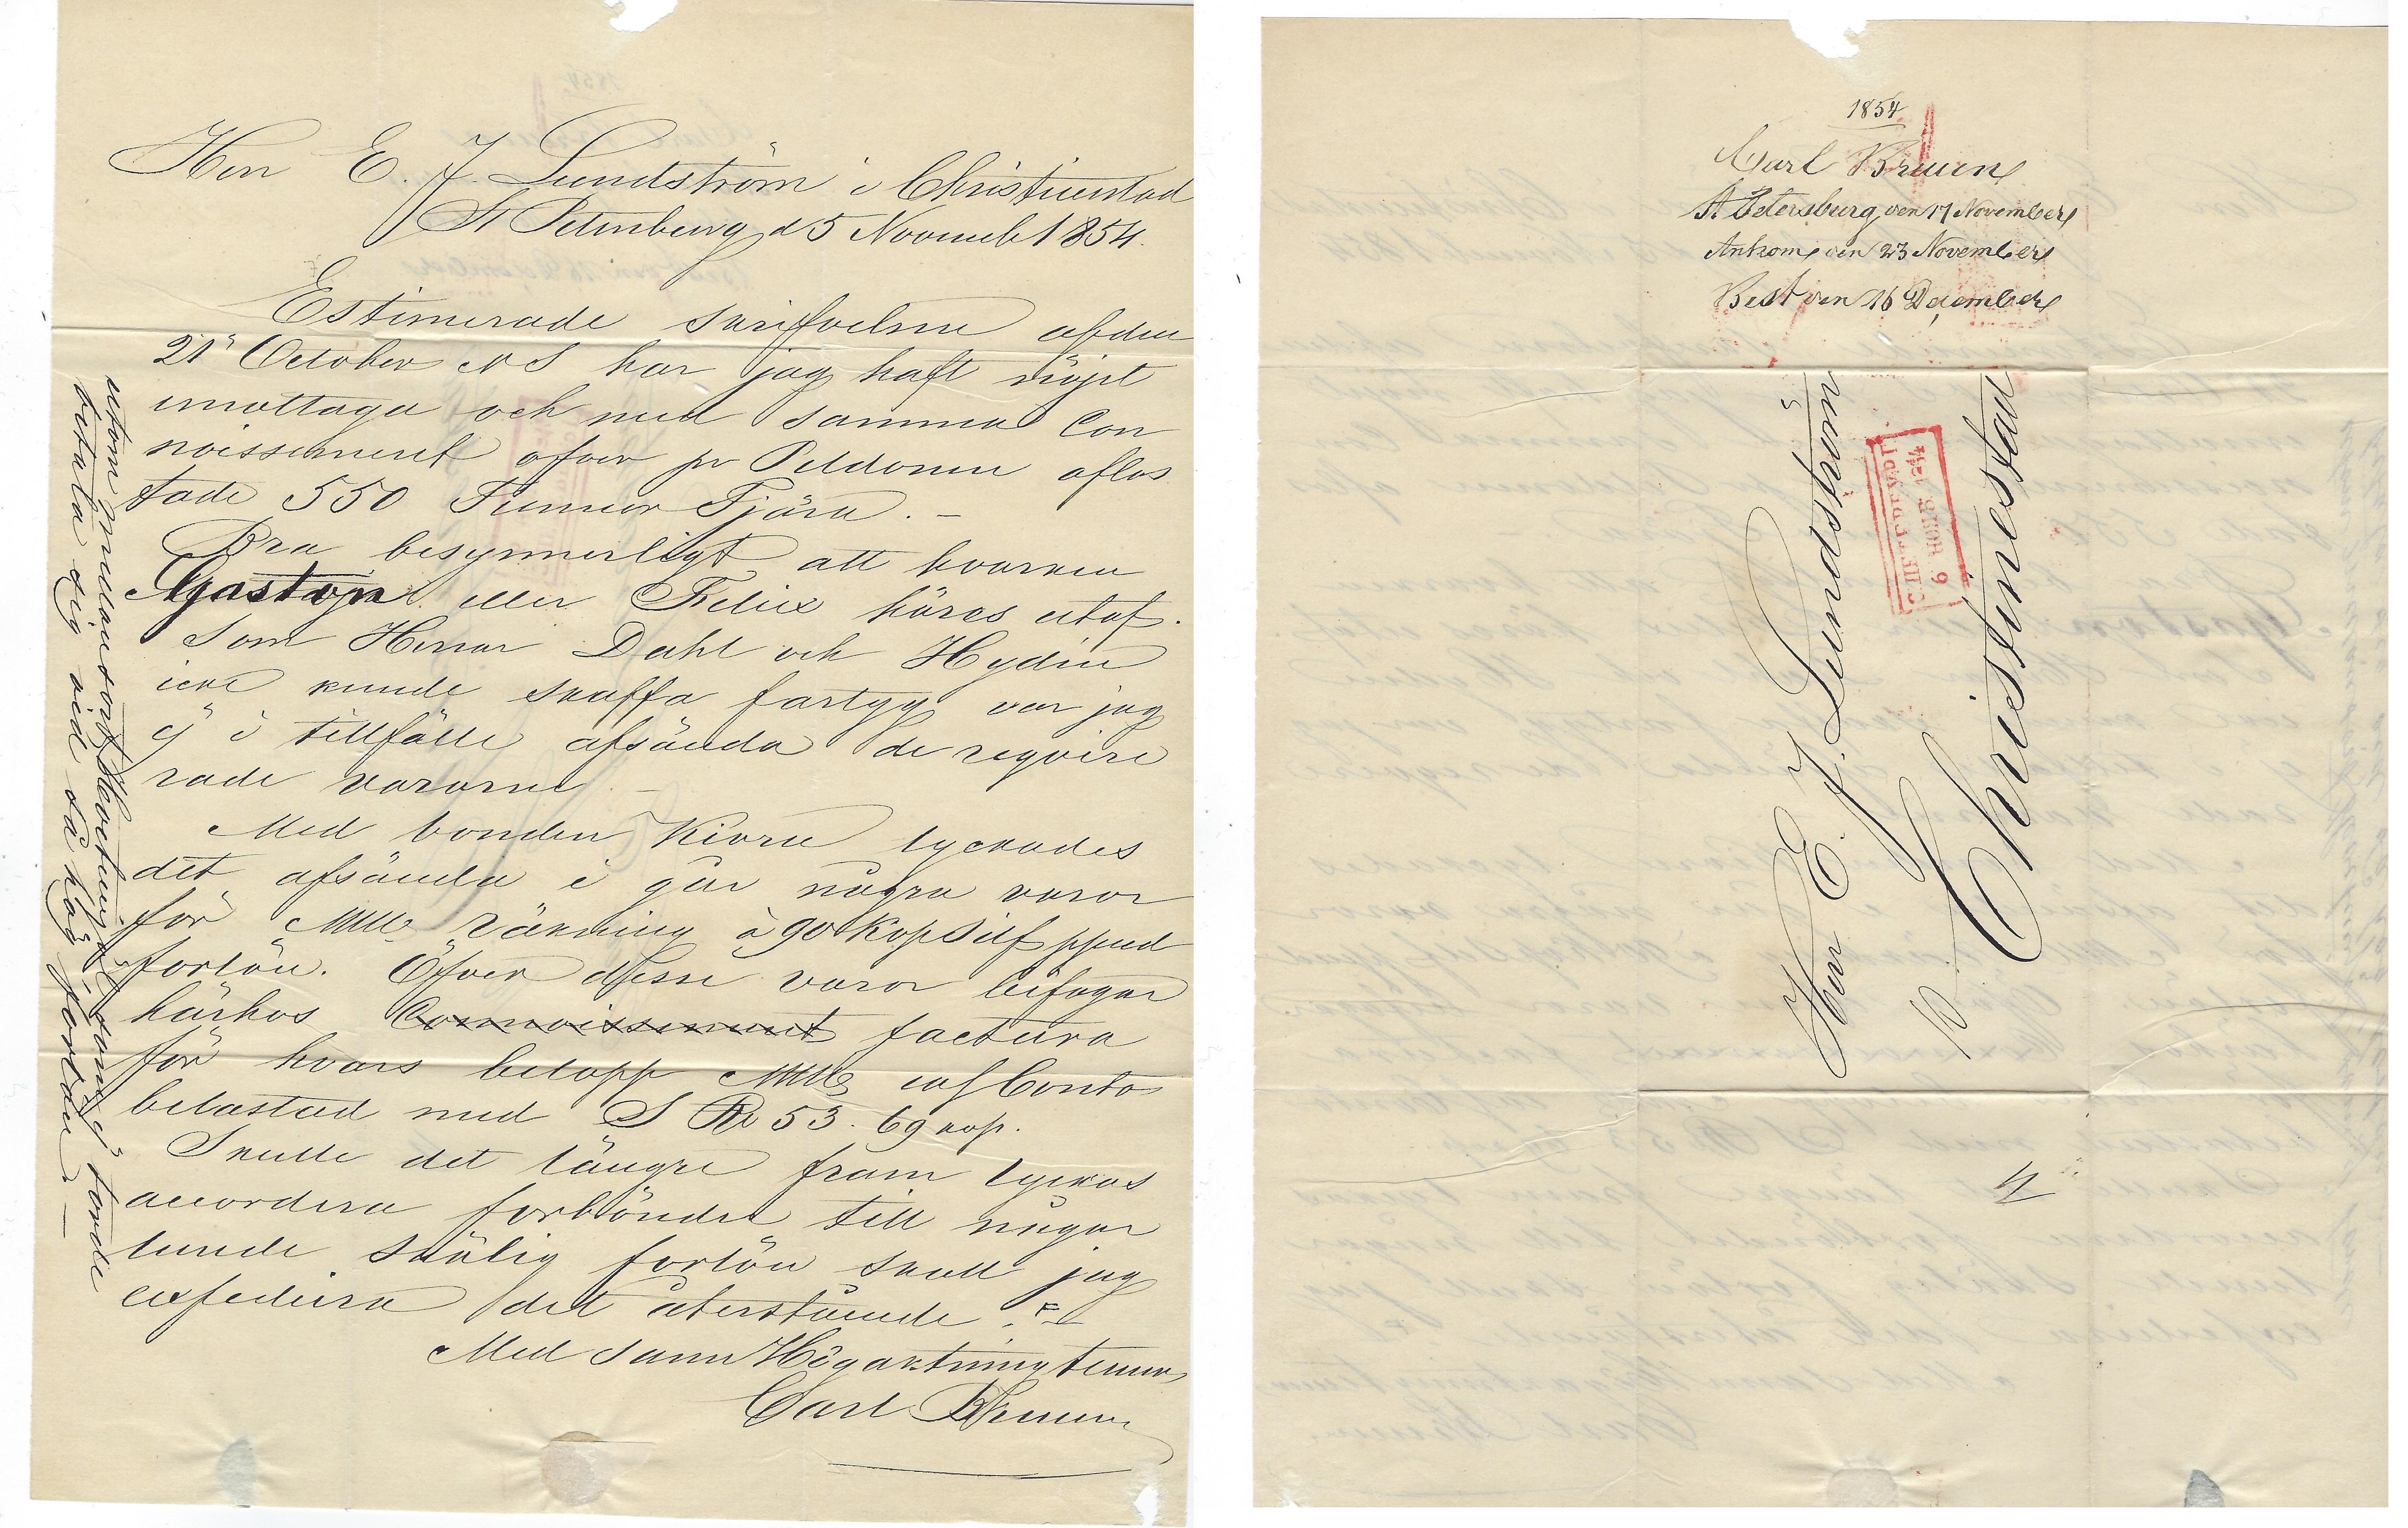 Herr E. J. Lundström i Christinestad
St Petersburg d 5 Novemb 1854.
Estimerade skrifvelsen af den
21 October N S har jag haft nöjet
emottaga och med samma Con
noissement öfver pr Peldonen aflas
tade 550 Tunnor Tjära. –
Bra besynnerligt att hvarken
Gaston eller Felix höres utaf.
Som Herrar Dahl och Hydén
icke kunde skaffa fartyg var jag
ej i tillfälle afsända de reqvire
rade varorne –
Med bonden Kivrie lyckades
det afsända i går några varor
för räkning à 90 Kop Silf ppud
forlön. Öfver dessa varor bifogar
härhos Connoissement factura
för hvars belopp Conto
belastad med S Ro 53. 69 kop.
Skulle det längre fram lyckas
accordera forbönder till någor
lunda skälig forlön skall jag
expediera det återstående. –
Med sann Högaktning tecknar
Carl Bruun
utom som ej torde
betala sig vid så hög forlön –
1854
Carl Bruun
St Petersburg den 17 November
Ankom den 23 November
Best den 16 December
Herr E. J. Lundström
Christinestad
С. ПЕТЕРБУРГЪ
6 НОЯБ. 1854